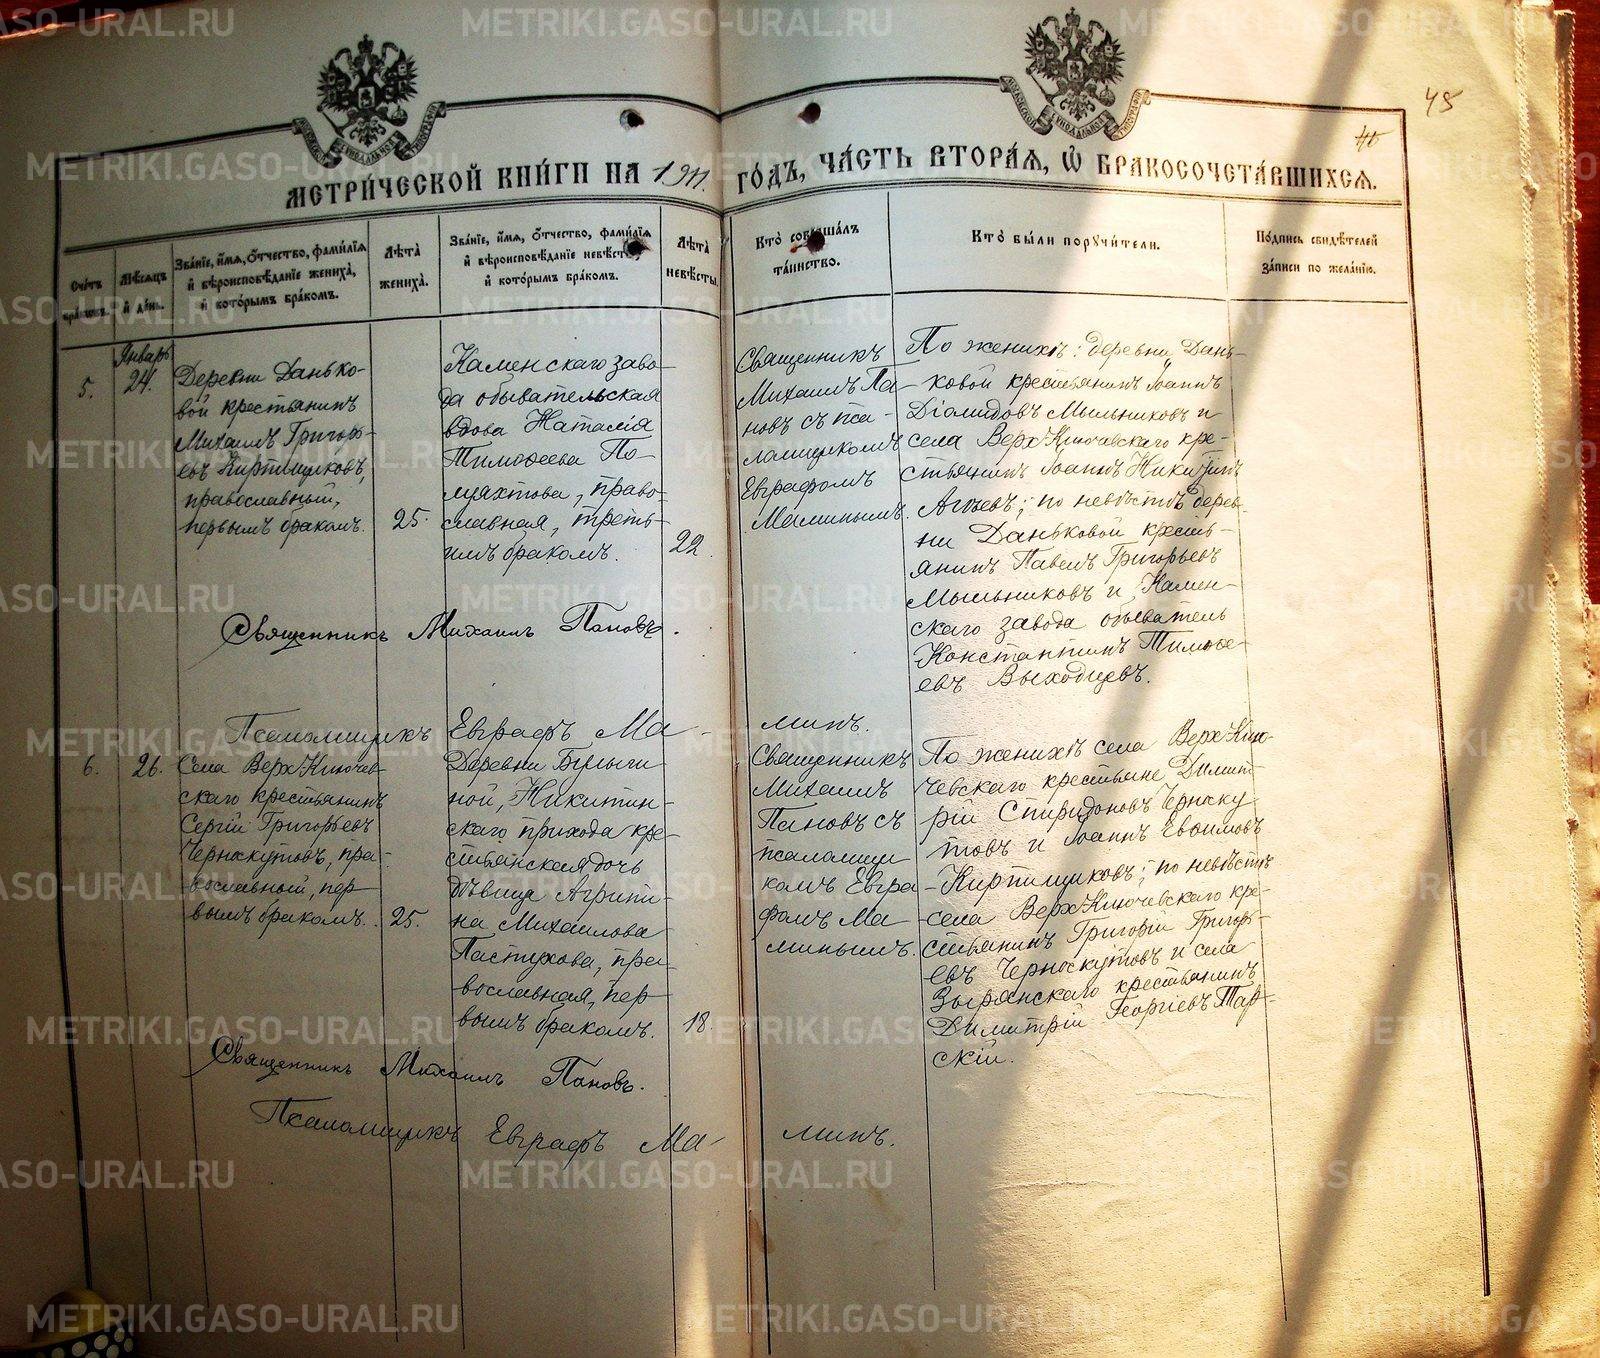 METRIKI.GASO-URAL.RU
48
46
МЕТРИ́ЧЕСКОЙ КНИ́ГИ НА 1911. ГО́ДЪ, ЧА́СТЬ ВТОРА́Я, Ѽ БРАКОСОЧЕТА́ВШИХСЯ.
Сче́тъ бра́ковъ.
Мѣ́сяцъ и де́нь.
Зва́нїе, и́мя, о́тчество, фами́лїя и вѣроисповѣ́данїе жениха́, и кото́рымъ бра́комъ.
Лѣ́та жениха́.
Зва́нїе, и́мя, о́тчество, фами́лїя и вѣроисповѣ́данїе невѣ́сты, и кото́рымъ бра́комъ.
Лѣ́та невѣ́сты.
Кто̀ соверша́лъ та́инство.
Кто̀ бы́ли поручи́тели.
По́дпись свидѣ́телей за́писи по жела́нїю.
5.
Январь
24.
Деревни Данько-
вой крестьянинъ
Михаилъ Григорь-
евъ Киртищиковъ,
православный,
первымъ бракомъ.
25.
Каменскаго заво-
да обывательская
вдова Наталія
Тимофеева По-
муяхтова, право-
славная, треть-
имъ бракомъ.
22.
Священникъ
Михаилъ Па-
новъ съ пса-
ломщикомъ
Евграфомъ
Малинымъ.
По женихѣ: деревни Дань-
ковой крестьянинъ Іоаннъ
Діомидовъ Мыльниковъ и
села ВерхКлючевскаго кре-
стьянинъ Іоаннъ Никитинъ
Агѣевъ; по невѣстѣ дерев-
ни Даньковой кресть-
янинъ Павелъ Григорьевъ
Мыльниковъ и Камен-
скаго завода обыватель
Константинъ Тимофе-
евъ Выходцевъ.
Священникъ Михаилъ Пановъ.
Псаломщикъ Евграфъ Ма-
линъ.
6.
26.
Села ВерхКлючев-
скаго крестьянинъ
Сергій Григорьевъ
Черноскутовъ, пра-
вославный, пер-
вымъ бракомъ.
25.
Деревни Брыги-
ной, Никитин-
скаго прихода кре-
стьянская дочь
дѣвица Агрипи-
на Михаилова
Пастухова, пра-
вославная, пер-
вымъ бракомъ.
18.
Священникъ
Михаилъ
Пановъ съ
псаломщи
комъ Евгра-
фомъ Ма
линымъ.
По женихѣ села ВерхКлю-
чевскаго крестьяне Димит-
рій Спиридоновъ Черноску-
товъ и Іоаннъ Евѳимовъ
Киртищиковъ; по невѣстѣ
села ВерхКлючевскаго кре-
стьянинъ Григорій Григорь-
евъ Черноскутовъ и села
Зырянскаго крестьянинъ
Димитрій Георгіевъ Тар-
скій.
Священникъ Михаилъ Пановъ.
Псаломщикъ Евграфъ Ма-
линъ.